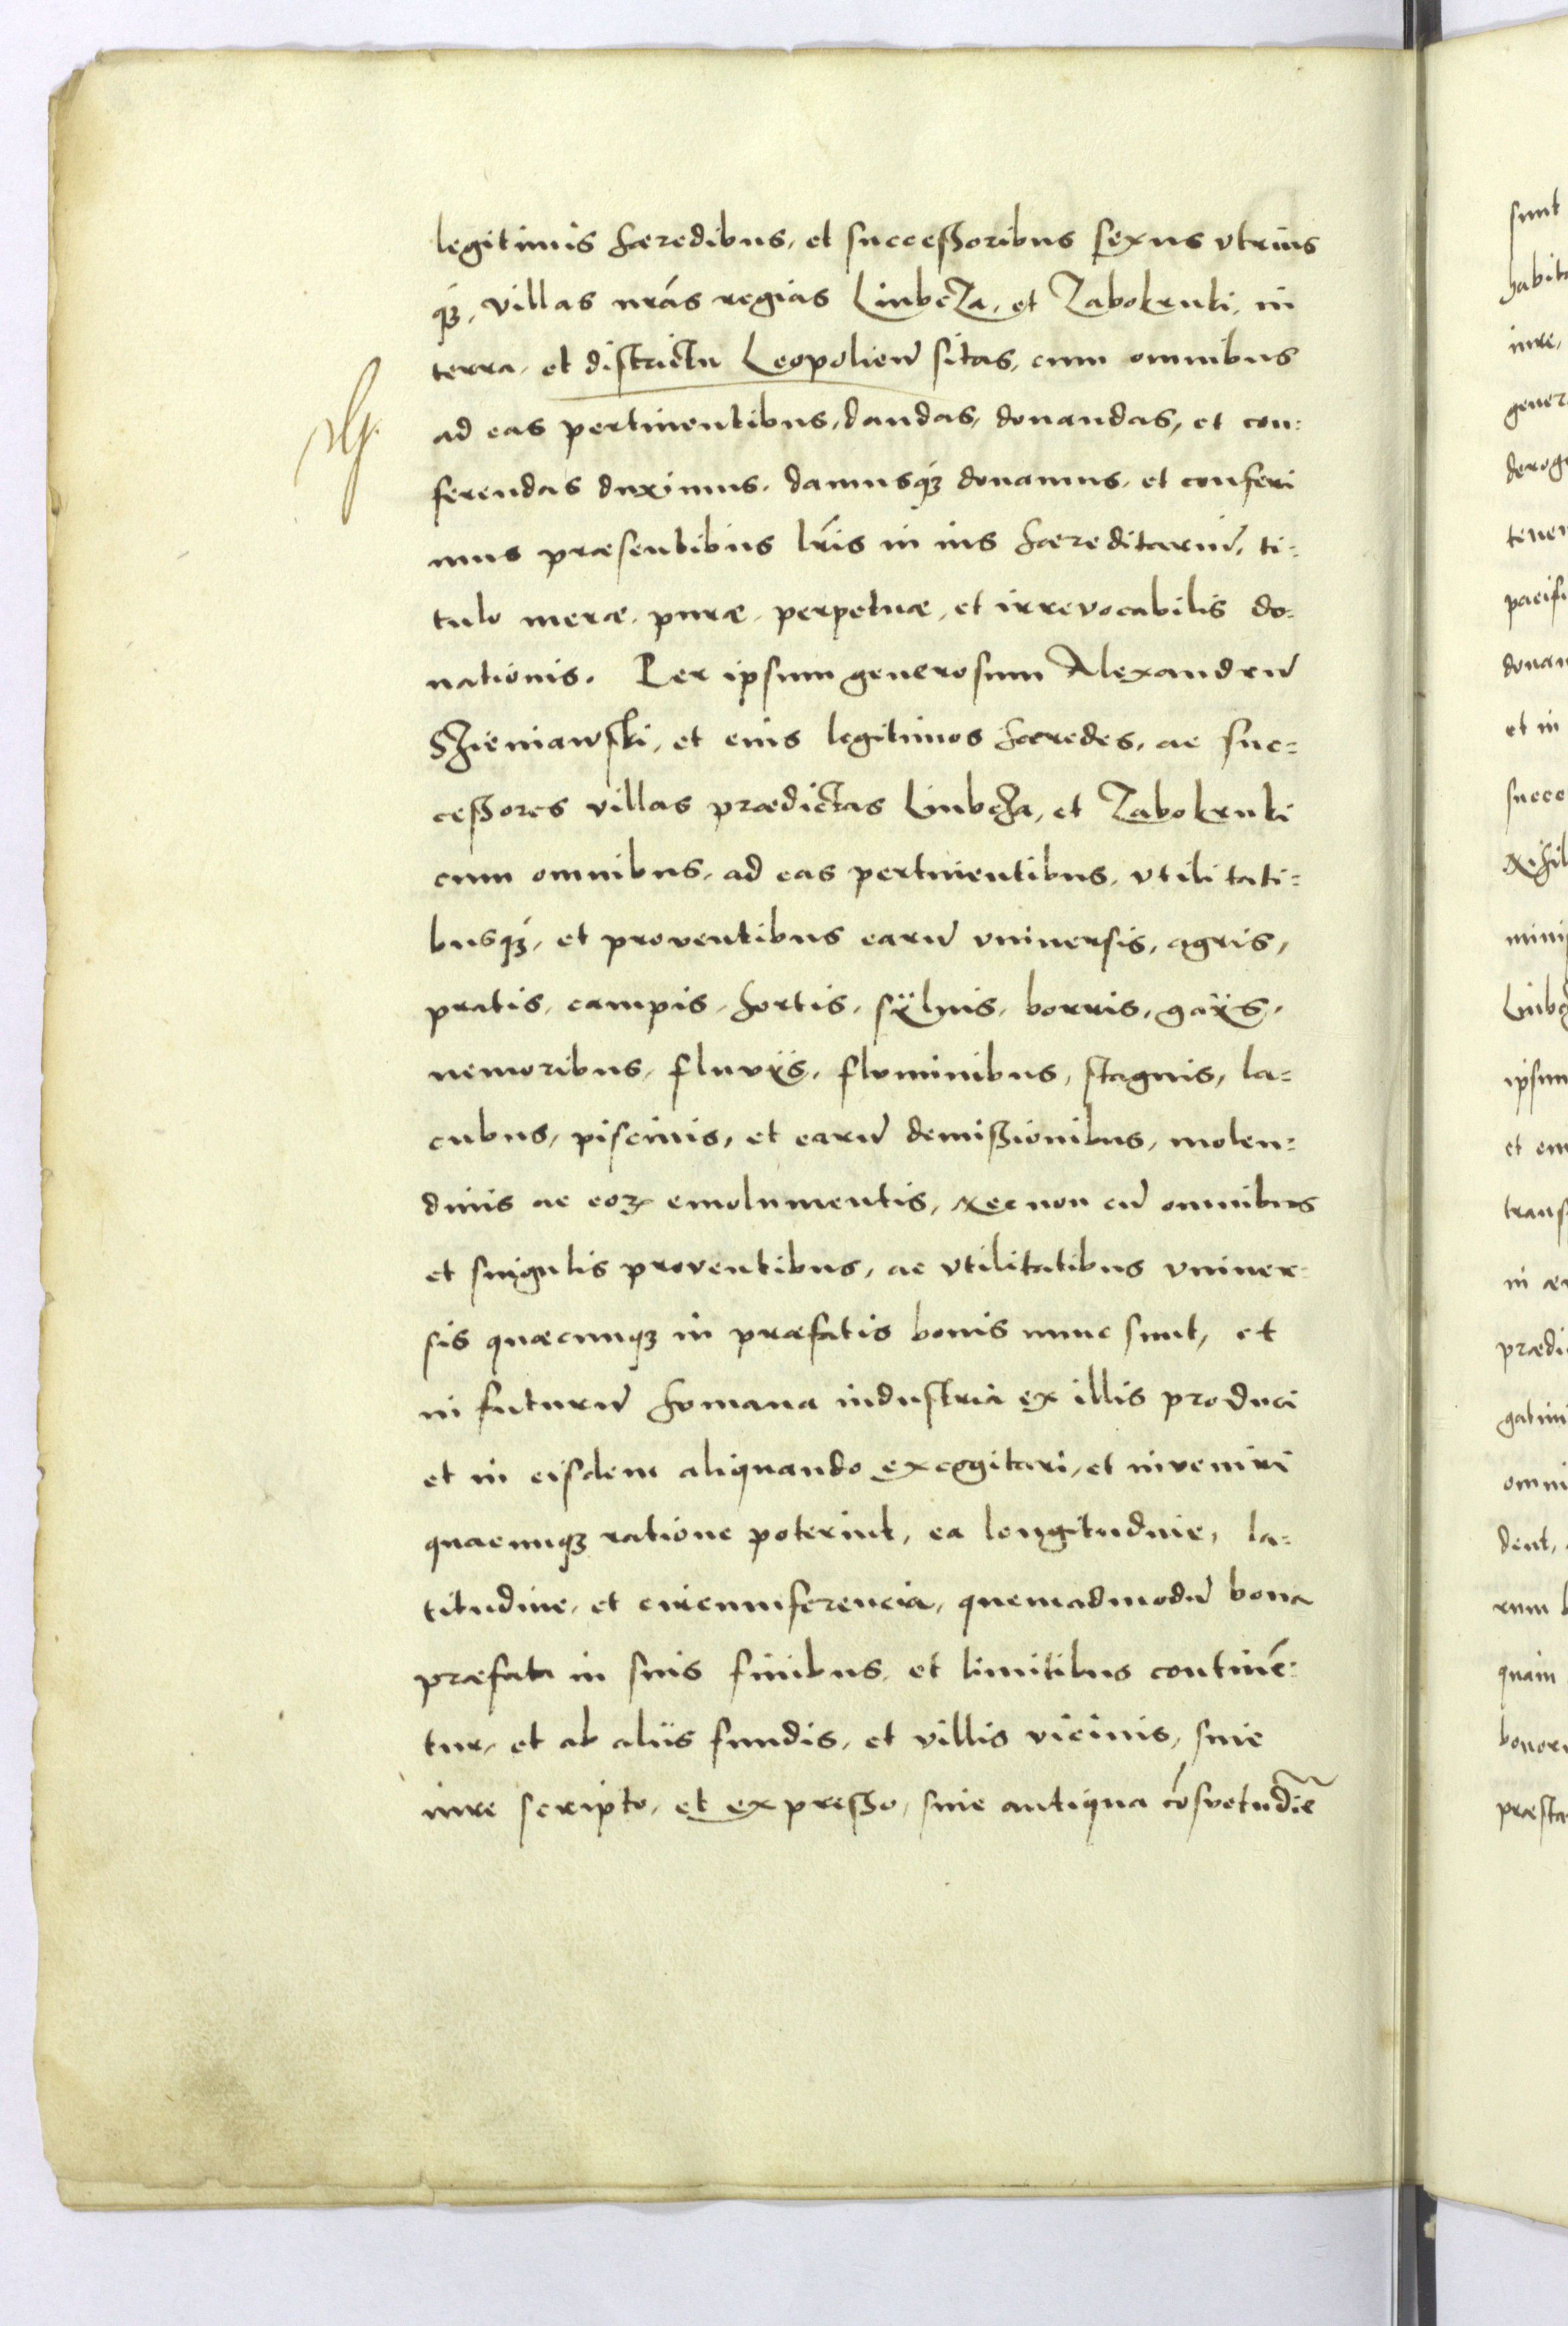 legitimis hæredibus, et successoribus sexus vtrius
q́ꝫ, villas nrás regias Liubcza, et Zabokruki, in
terra, et districtu Leopolień sitas, cum omnibus
ad eas pertinentibus, dandas, donandas, et con:
ferendas duximus, damusq́ꝫ donamus, et conferi
mus præsentibus lr̃is in ius hæreditariũ, ti:
tulo meræ, puræ, perpetuæ, et irrevocabilis do:
nationis. Per ipsum generosum Alexandrũ
Szieniawski, et eius legitimos hæredes, ac suc=
cessores villas prædictas Liubcza, et Zabokruki
cum omnibus, ad eas pertinentibus, vtilitati=
busq́ꝫ, et proventibus earũ vniuersis, agris,
pratis, campis, hortis, sÿluis, borris, gaÿs,
nemoribus, fluvÿs, fluminibus, stagnis, la=
cubus, piscinis, et earũ demissionibus, molen:
dinis ac eoꝝ emolumentis, Necnon cũ omnibus
et singulis proventibus, ac vtilitatibus vniuer:
sis quæcunqꝫ in præfatis bonis nunc sunt, et
in futurũ homana industria ex illis produci
et in eisdem aliquando excogitari, et inveniri
quacunqꝫ ratione poterint, ea longitudine, la=
titudine, et circumferencia, quemadmodũ bona
præfata in suis finibus, et limitibus continẽ:
tur, et ab aliis fundis, et villis vicinis, siue
iure scripto, et expresso, siue antiqua cõsvetudĩe
sunt
habit
iure,
gener
derog
tene
pacifi
donan
et in
succe
Liubc
ipsum
et em
trans
in
prædi
gatim
omni
dent,
rum b
quam
bonor
præsta